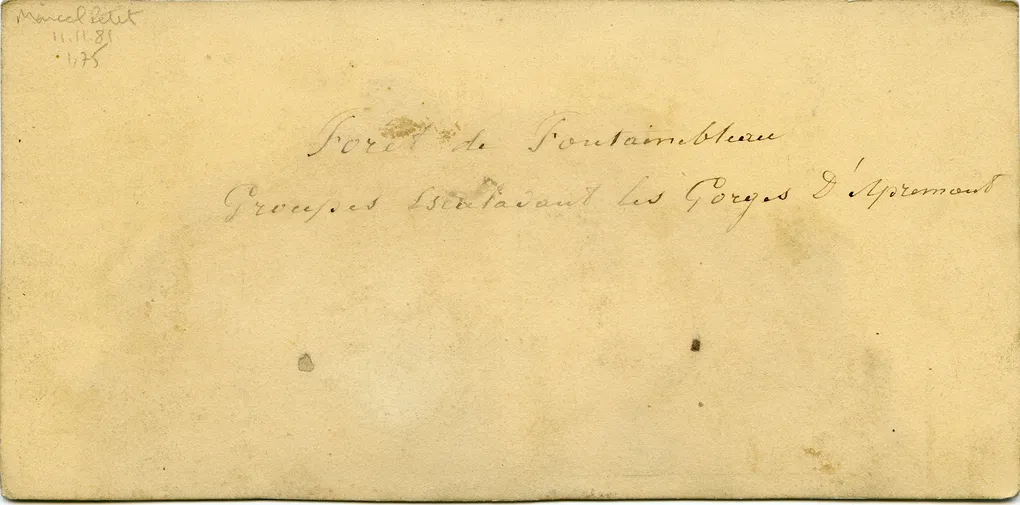 Marcel Petit
11.11.81
1,75
Foret de Fontainebleau
Groupes Escaladant les Gorges D'Apremont